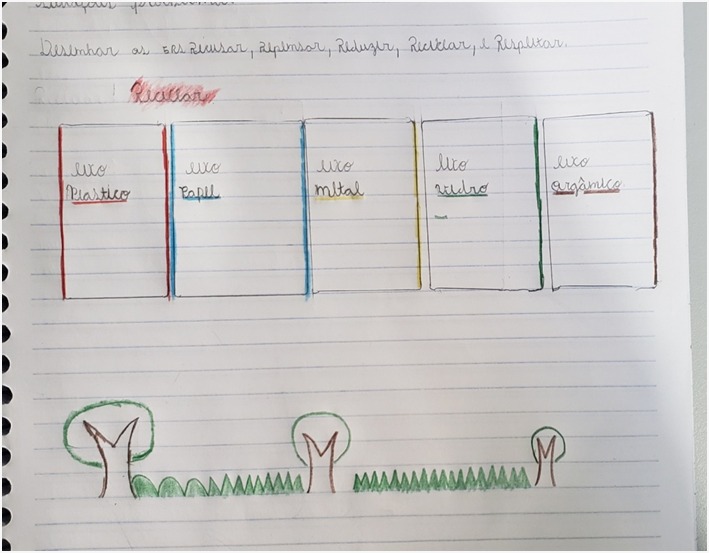 Desenhar os 5RS Recusar, Repensar, Reduzir, Reciclar, e Respeitar.
Reciclar
lixo Plastico
lixo Papel
lixo metal
lixo vidro
lixo orgâmico